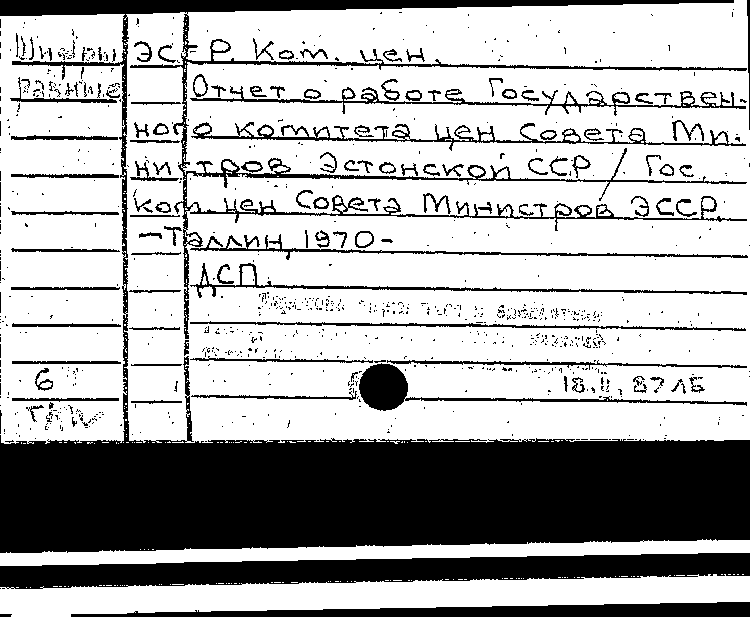 Шифры ЭССР. Ком. цен.
разные Отчет о работе Государствен-
ного комитета цен Совета Ми-
нистров Эстонской ССР / Гос.
ком. цен Совета Министров ЭССР.
-Таллин, 1970-
ДСП.
6 18.II.87 ЛБ